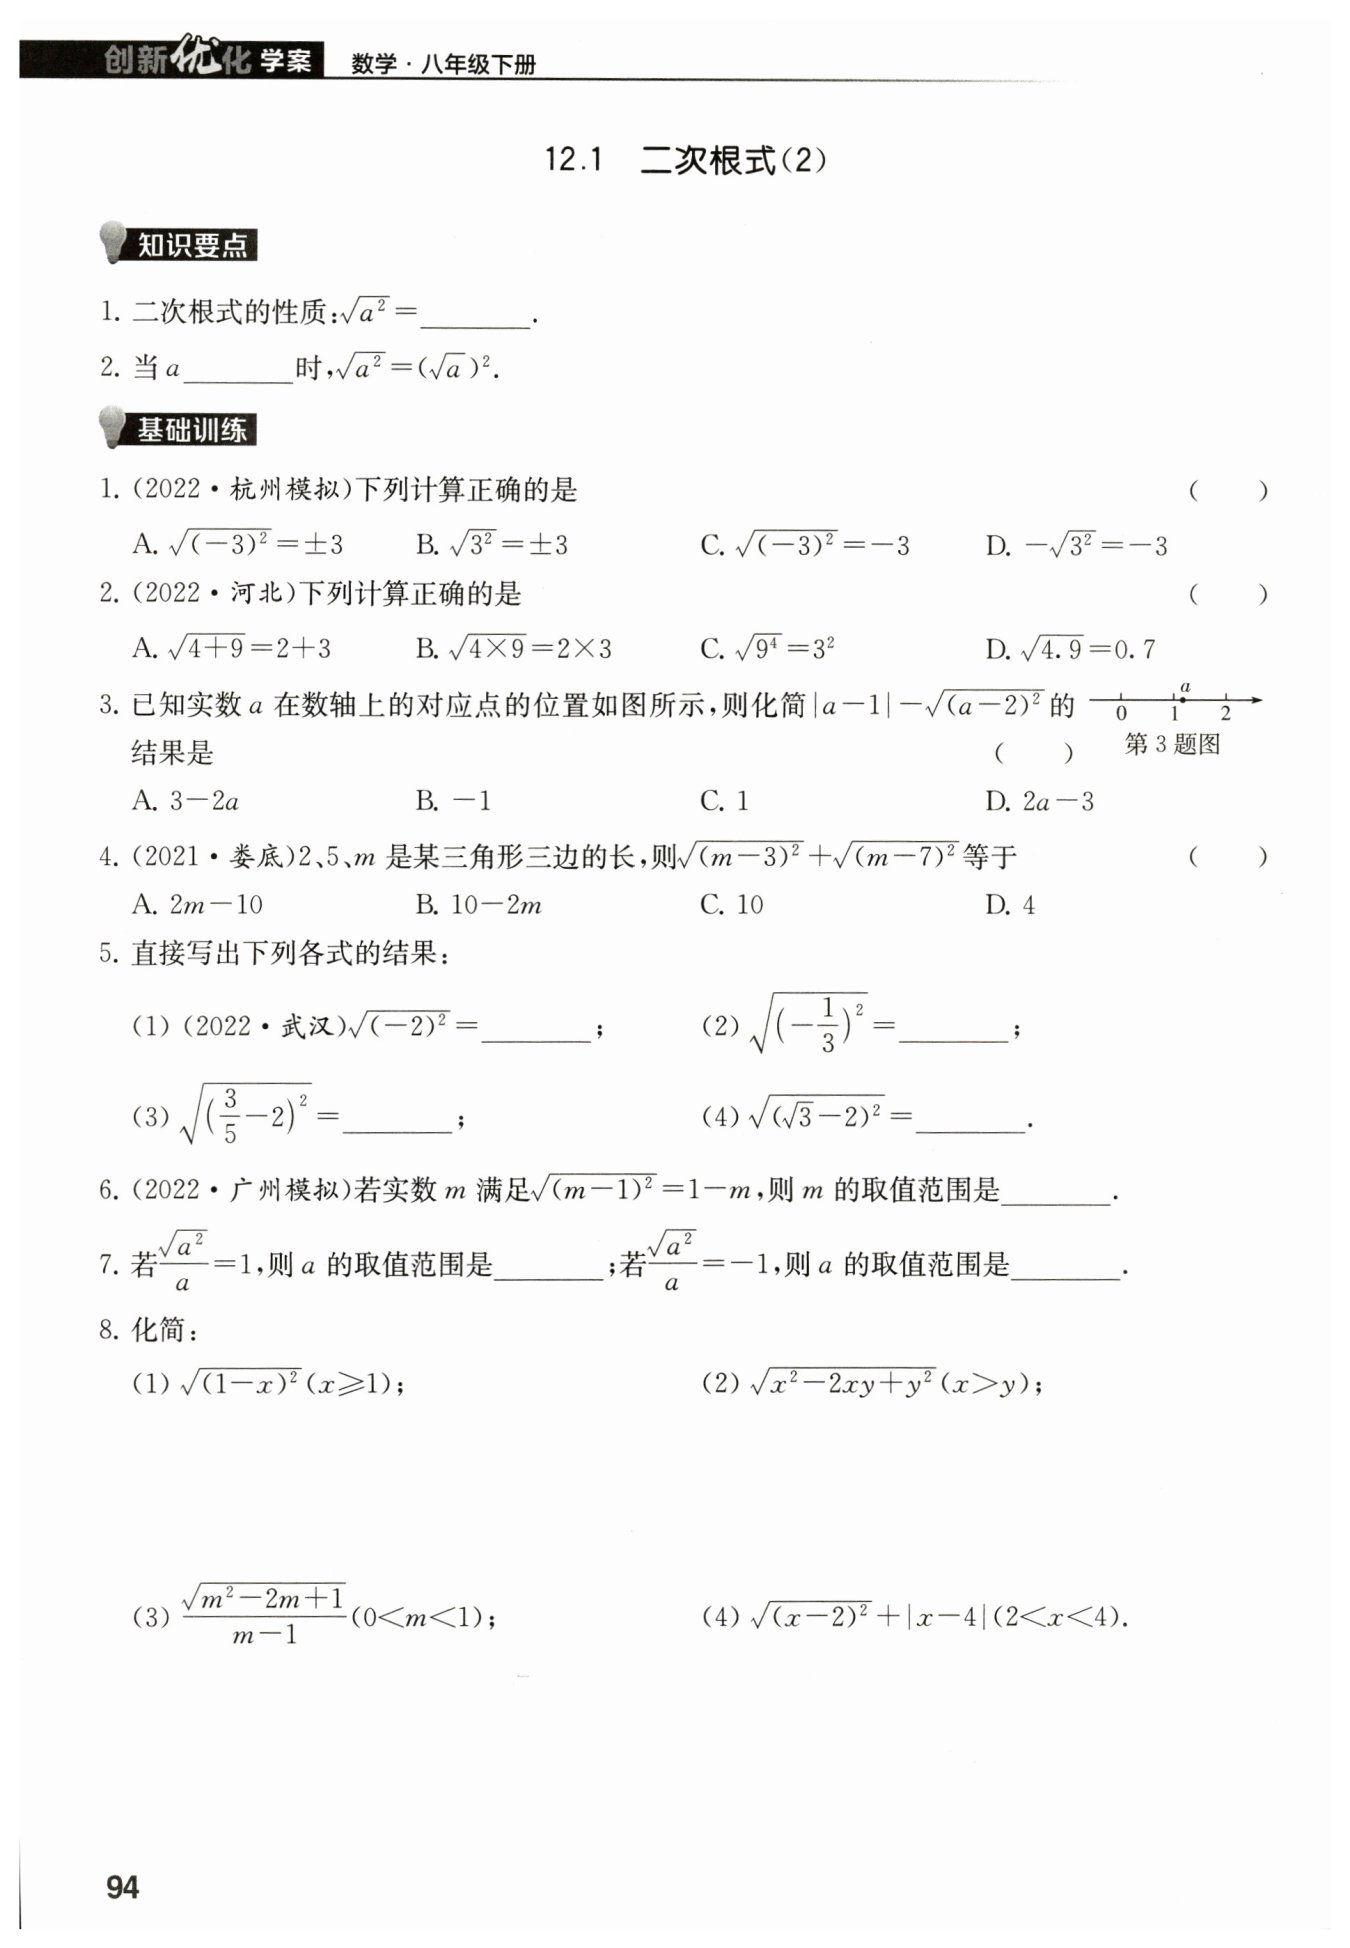 创新优化学案 数学·八年级下册
12.1 二次根式(2)
知识要点
1. 二次根式的性质:√(a²)=________.
2. 当a________时,√(a²)=(√a)².
基础训练
1. (2022·杭州模拟)下列计算正确的是 ( )
A. √((-3)²)=±3 B. √(3²)=±3 C. √((-3)²)=-3 D. -√(3²)=-3
2. (2022·河北)下列计算正确的是 ( )
A. √(4+9)=2+3 B. √(4×9)=2×3 C. √(9⁴)=3² D. √(4.9)=0.7
3. 已知实数a在数轴上的对应点的位置如图所示,则化简|a-1|-√((a-2)²)的
结果是 ( )
a
0 1 2
第3题图
A. 3-2a B. -1 C. 1 D. 2a-3
4. (2021·娄底)2、5、m是某三角形三边的长,则√((m-3)²)+√((m-7)²)等于 ( )
A. 2m-10 B. 10-2m C. 10 D. 4
5. 直接写出下列各式的结果:
(1) (2022·武汉)√((-2)²)=________; (2) √((-1/3)²)=________;
(3) √((3/5-2)²)=________; (4) √((√3-2)²)=________.
6. (2022·广州模拟)若实数m满足√((m-1)²)=1-m,则m的取值范围是________.
7. 若√(a²)/a=1,则a的取值范围是________;若√(a²)/a=-1,则a的取值范围是________.
8. 化简:
(1) √((1-x)²)(x≥1); (2) √(x²-2xy+y²)(x>y);
(3) √(m²-2m+1)/(m-1)(0<m<1); (4) √((x-2)²)+|x-4|(2<x<4).
94